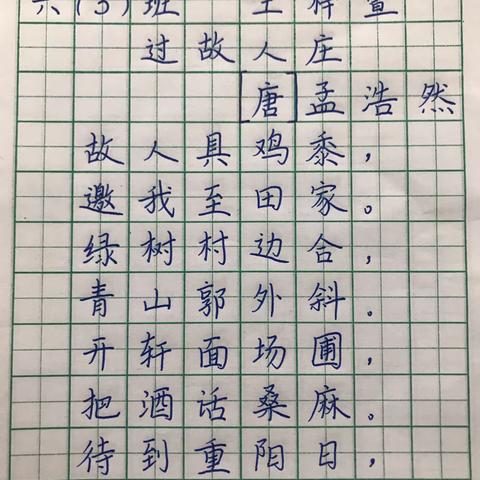 六(3)班
过故人庄
[唐]孟浩然
故人具鸡黍，
邀我至田家。
绿树村边合，
青山郭外斜。
开轩面场圃，
把酒话桑麻。
待到重阳日，